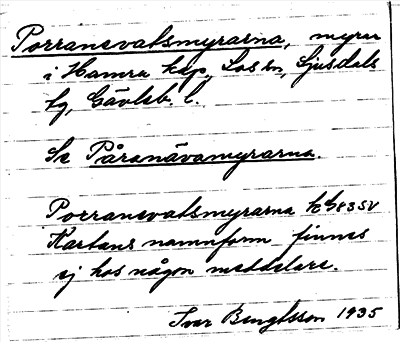 Porranevatsmyrarna, myrar
i Hamra kap, Los sn, Ljusdals
tg, Gävleb. l.
Se Påranävamyrarna.
Porranevatsmyrarna kbl 83 SV
Kartans namnform finnes
ej hos någon meddelare.
Ivar Bengtsson 1935